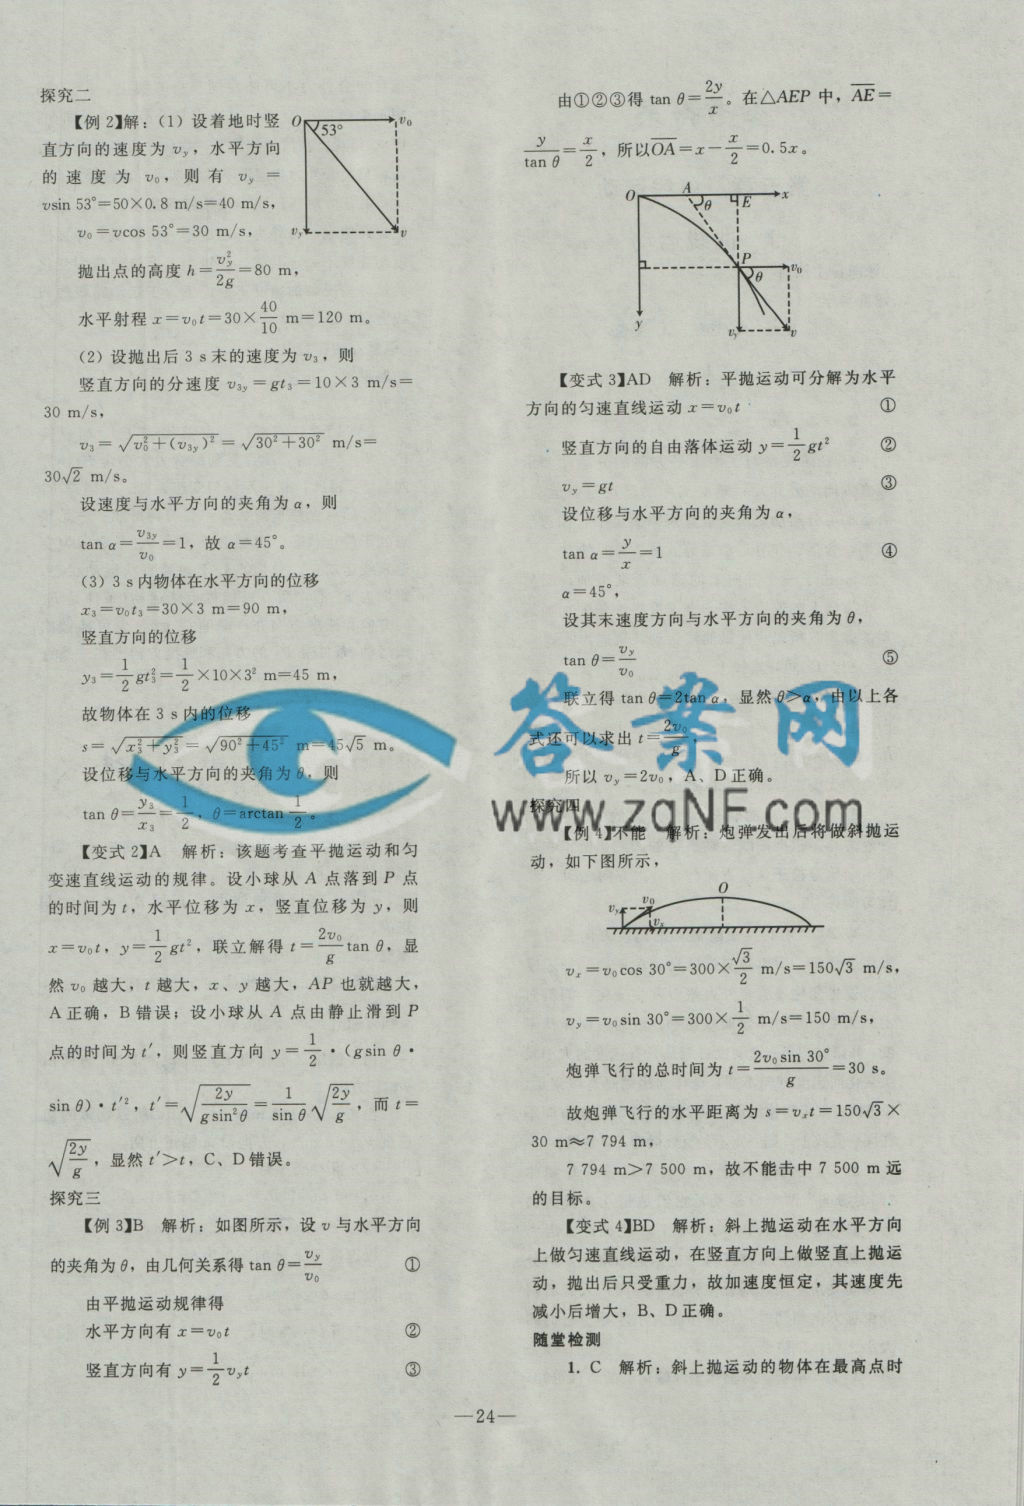 探究二
【例2】解：(1) 设着地时竖
直方向的速度为 vy，水平方向
的速度为 v0，则有 vy＝
vsin 53°＝50×0.8 m/s＝40 m/s，
v0＝vcos 53°＝30 m/s，
O 53° v0
vy v
抛出点的高度 h＝vy²/2g＝80 m，
水平射程 x＝v0t＝30×40/10 m＝120 m。
(2) 设抛出后 3 s 末的速度为 v3，则
竖直方向的分速度 v3y＝gt3＝10×3 m/s＝
30 m/s，
v3＝√(v0²＋(v3y)²)＝√(30²＋30²) m/s＝
30√2 m/s。
设速度与水平方向的夹角为 α，则
tan α＝v3y/v0＝1，故 α＝45°。
(3) 3 s 内物体在水平方向的位移
x3＝v0t3＝30×3 m＝90 m，
竖直方向的位移
y3＝1/2 gt3²＝1/2×10×3² m＝45 m，
故物体在 3 s 内的位移
s＝√(x3²＋y3²)＝√(90²＋45²) m＝45√5 m。
设位移与水平方向的夹角为 θ，则
tan θ＝y3/x3＝1/2，θ＝arctan 1/2。
【变式2】A 解析：该题考查平抛运动和匀
变速直线运动的规律。设小球从 A 点落到 P 点
的时间为 t，水平位移为 x，竖直位移为 y，则
x＝v0t，y＝1/2 gt²，联立解得 t＝2v0/g tan θ，显
然 v0 越大，t 越大，x、y 越大，AP 也就越大，
A 正确，B 错误；设小球从 A 点由静止滑到 P
点的时间为 t′，则竖直方向 y＝1/2·(gsin θ·
sin θ)·t′²，t′＝√(2y/gsin²θ)＝1/sin θ √(2y/g)，而 t＝
√(2y/g)，显然 t′＞t，C、D 错误。
探究三
【例3】B 解析：如图所示，设 v 与水平方向
的夹角为 θ，由几何关系得 tan θ＝vy/v0 ①
由平抛运动规律得
水平方向有 x＝v0t ②
竖直方向有 y＝1/2 vyt ③
由①②③得 tan θ＝2y/x。在△AEP 中，AE＝
y/tan θ＝x/2，所以OA＝x－x/2＝0.5x。
O A θ E x
P θ v0
y vy v
【变式3】AD 解析：平抛运动可分解为水平
方向的匀速直线运动 x＝v0t ①
竖直方向的自由落体运动 y＝1/2 gt² ②
vy＝gt ③
设位移与水平方向的夹角为 α，
tan α＝y/x＝1 ④
α＝45°，
设其末速度方向与水平方向的夹角为 θ，
tan θ＝vy/v0 ⑤
联立得 tan θ＝2tan α，显然 θ＞α，由以上各
式还可以求出 t＝2v0/g，
所以 vy＝2v0，A、D 正确。
答案网
www.zqNF.com
探究四
【例4】不能 解析：炮弹发出后将做斜抛运
动，如下图所示，
O
vy v0
vx
vx＝v0cos 30°＝300×√3/2 m/s＝150√3 m/s，
vy＝v0sin 30°＝300×1/2 m/s＝150 m/s，
炮弹飞行的总时间为 t＝2v0sin 30°/g＝30 s。
故炮弹飞行的水平距离为 s＝vxt＝150√3×
30 m≈7 794 m，
7 794 m＞7 500 m，故不能击中 7 500 m 远
的目标。
【变式4】BD 解析：斜上抛运动在水平方向
上做匀速直线运动，在竖直方向上做竖直上抛运
动，抛出后只受重力，故加速度恒定，其速度先
减小后增大，B、D 正确。
随堂检测
1. C 解析：斜上抛运动的物体在最高点时
—24—